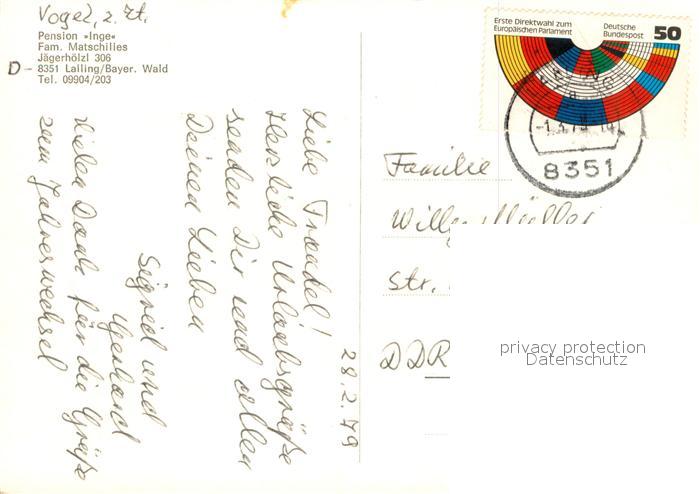 Vogel, z. Zt.
Pension »Inge«
Fam. Matschilles
Jägerhölzl 306
D - 8351 Lalling/Bayer. Wald
Tel. 09904/203
28.2.79
Liebe Traudel!
Herzliche Urlaubsgrüße
senden Dir und allen
Deinen Lieben
Sigrid und
Gerhard
Vielen Dank für die Grüße
zum Jahreswechsel
Erste Direktwahl zum
Europäischen Parlament
Deutsche
Bundespost
50
8351
Familie
Willy Müller
Str.
DDR
privacy protection
Datenschutz